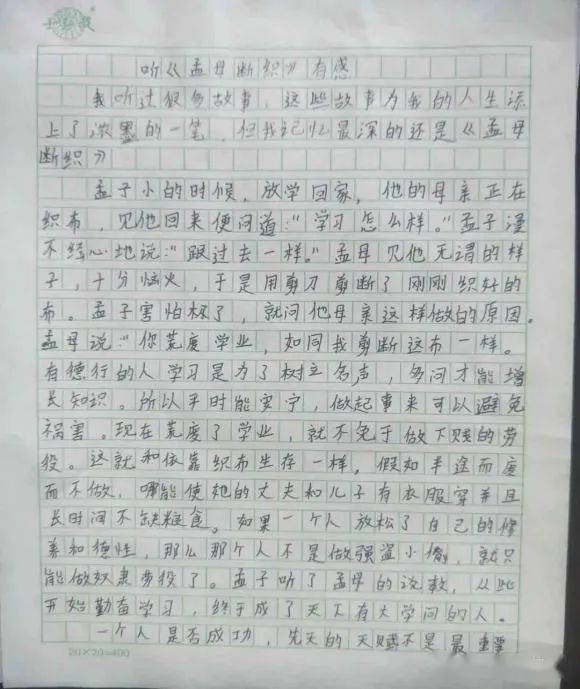 听《孟母断织》有感
我听过很多故事，这些故事为我的人生添
上了浓墨的一笔，但我记忆最深的还是《孟母
断织》
孟子小的时候，放学回家，他的母亲正在
织布，见他回来便问道："学习怎么样。"孟子漫
不经心地说："跟过去一样。"孟母见他无谓的样
子，十分恼火，于是用剪刀剪断了刚刚织好的
布。孟子害怕极了，就问他母亲这样做的原因。
孟母说："你荒废学业，如同我剪断这布一样。
有德行的人学习是为了树立名声，多问才能增
长知识。所以平时能安宁，做起事来可以避免
祸害。现在荒废了学业，就不免于做下贱的劳
役。这就和依靠织布生存一样，假如半途而废
而不做，哪能使她的丈夫和儿子有衣服穿并且
长时间不缺粮食。如果一个人放松了自己的修
养和德性，那么那个人不是做强盗小偷，就只
能做奴隶劳役了。孟子听了孟母的说教，从此
开始勤奋学习，终于成了天下有大学问的人。
一个人是否成功，先天的天赋不是最重要
20×20=400